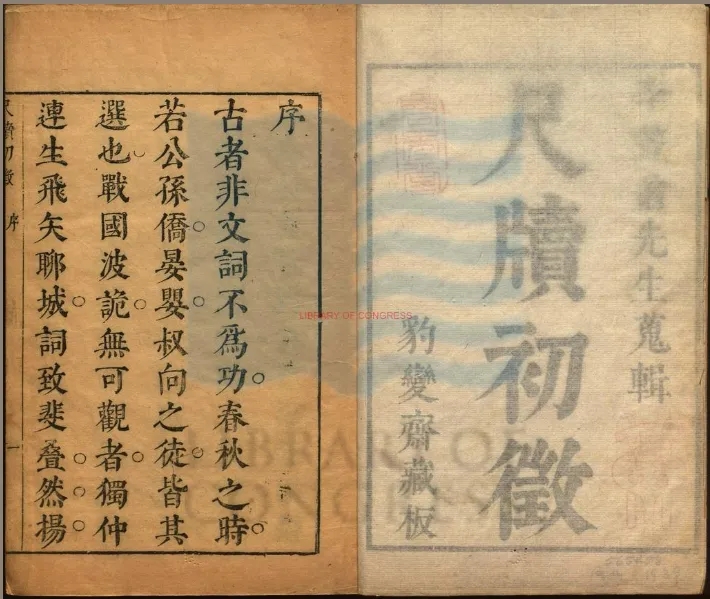 李笠翁先生蒐輯
尺牘初徵
豹變齋藏板
序
古者非文詞不爲功春秋之時
若公孫僑晏嬰叔向之徒皆其
選也戰國波詭無可觀者獨仲
連生飛矢聊城詞致斐叠然揚
尺牘初徵 序 一
LIBRARY OF CONGRESS
LIBRARY OF
CONGRESS